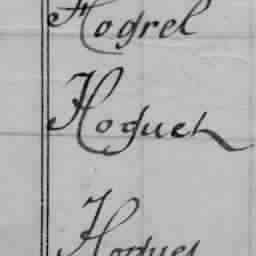 Hogrel
Hoguet
Hogues